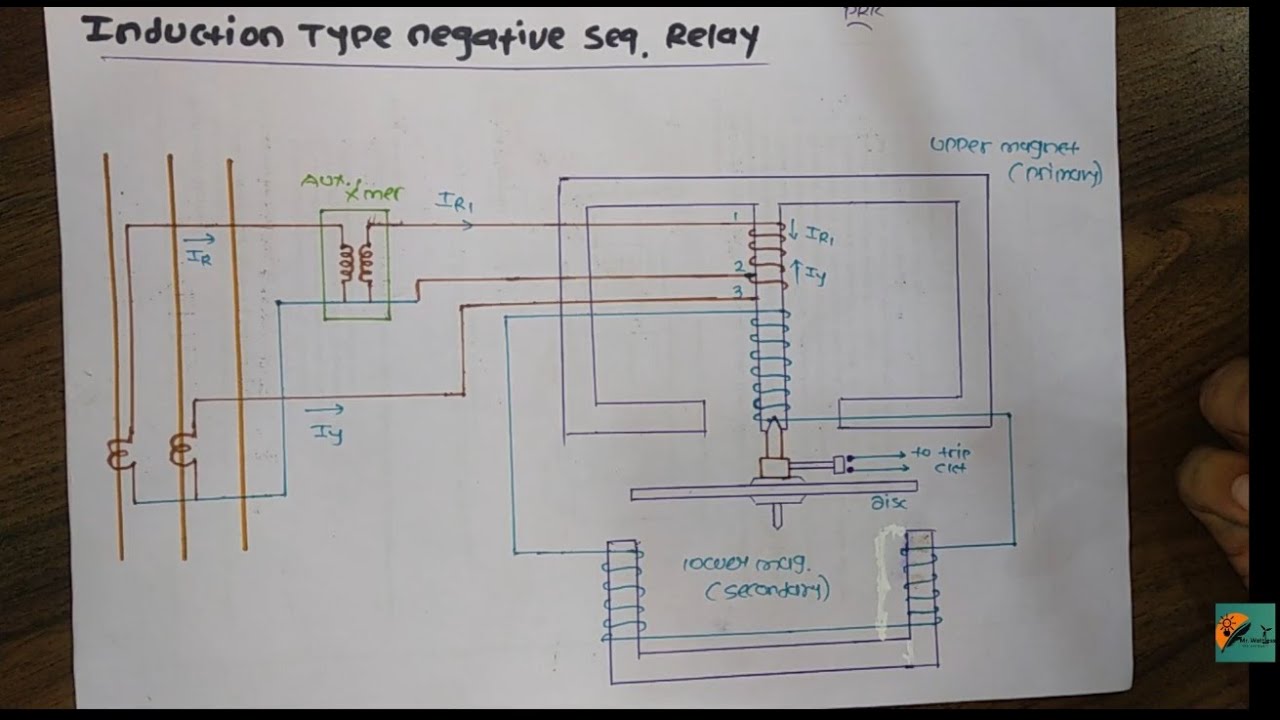 PRR
Induction Type negative Seq. Relay
upper magnet
(primary)
Aux.
Xmer
IR1
1
IR1
IR
2
Iy
3
Iy
to trip
cct
disc
lower mag.
(secondary)